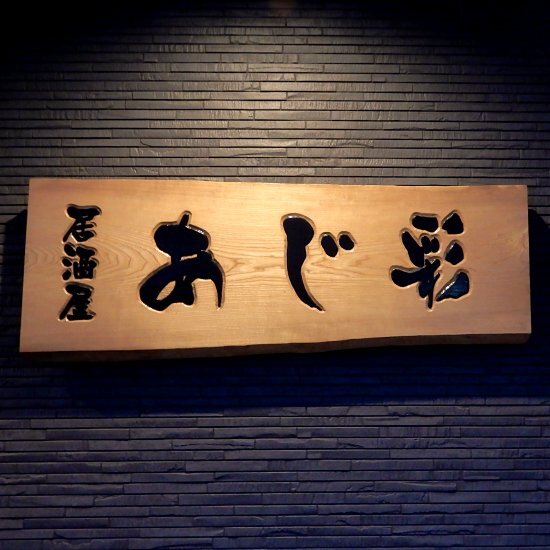 居酒屋
あじ彩